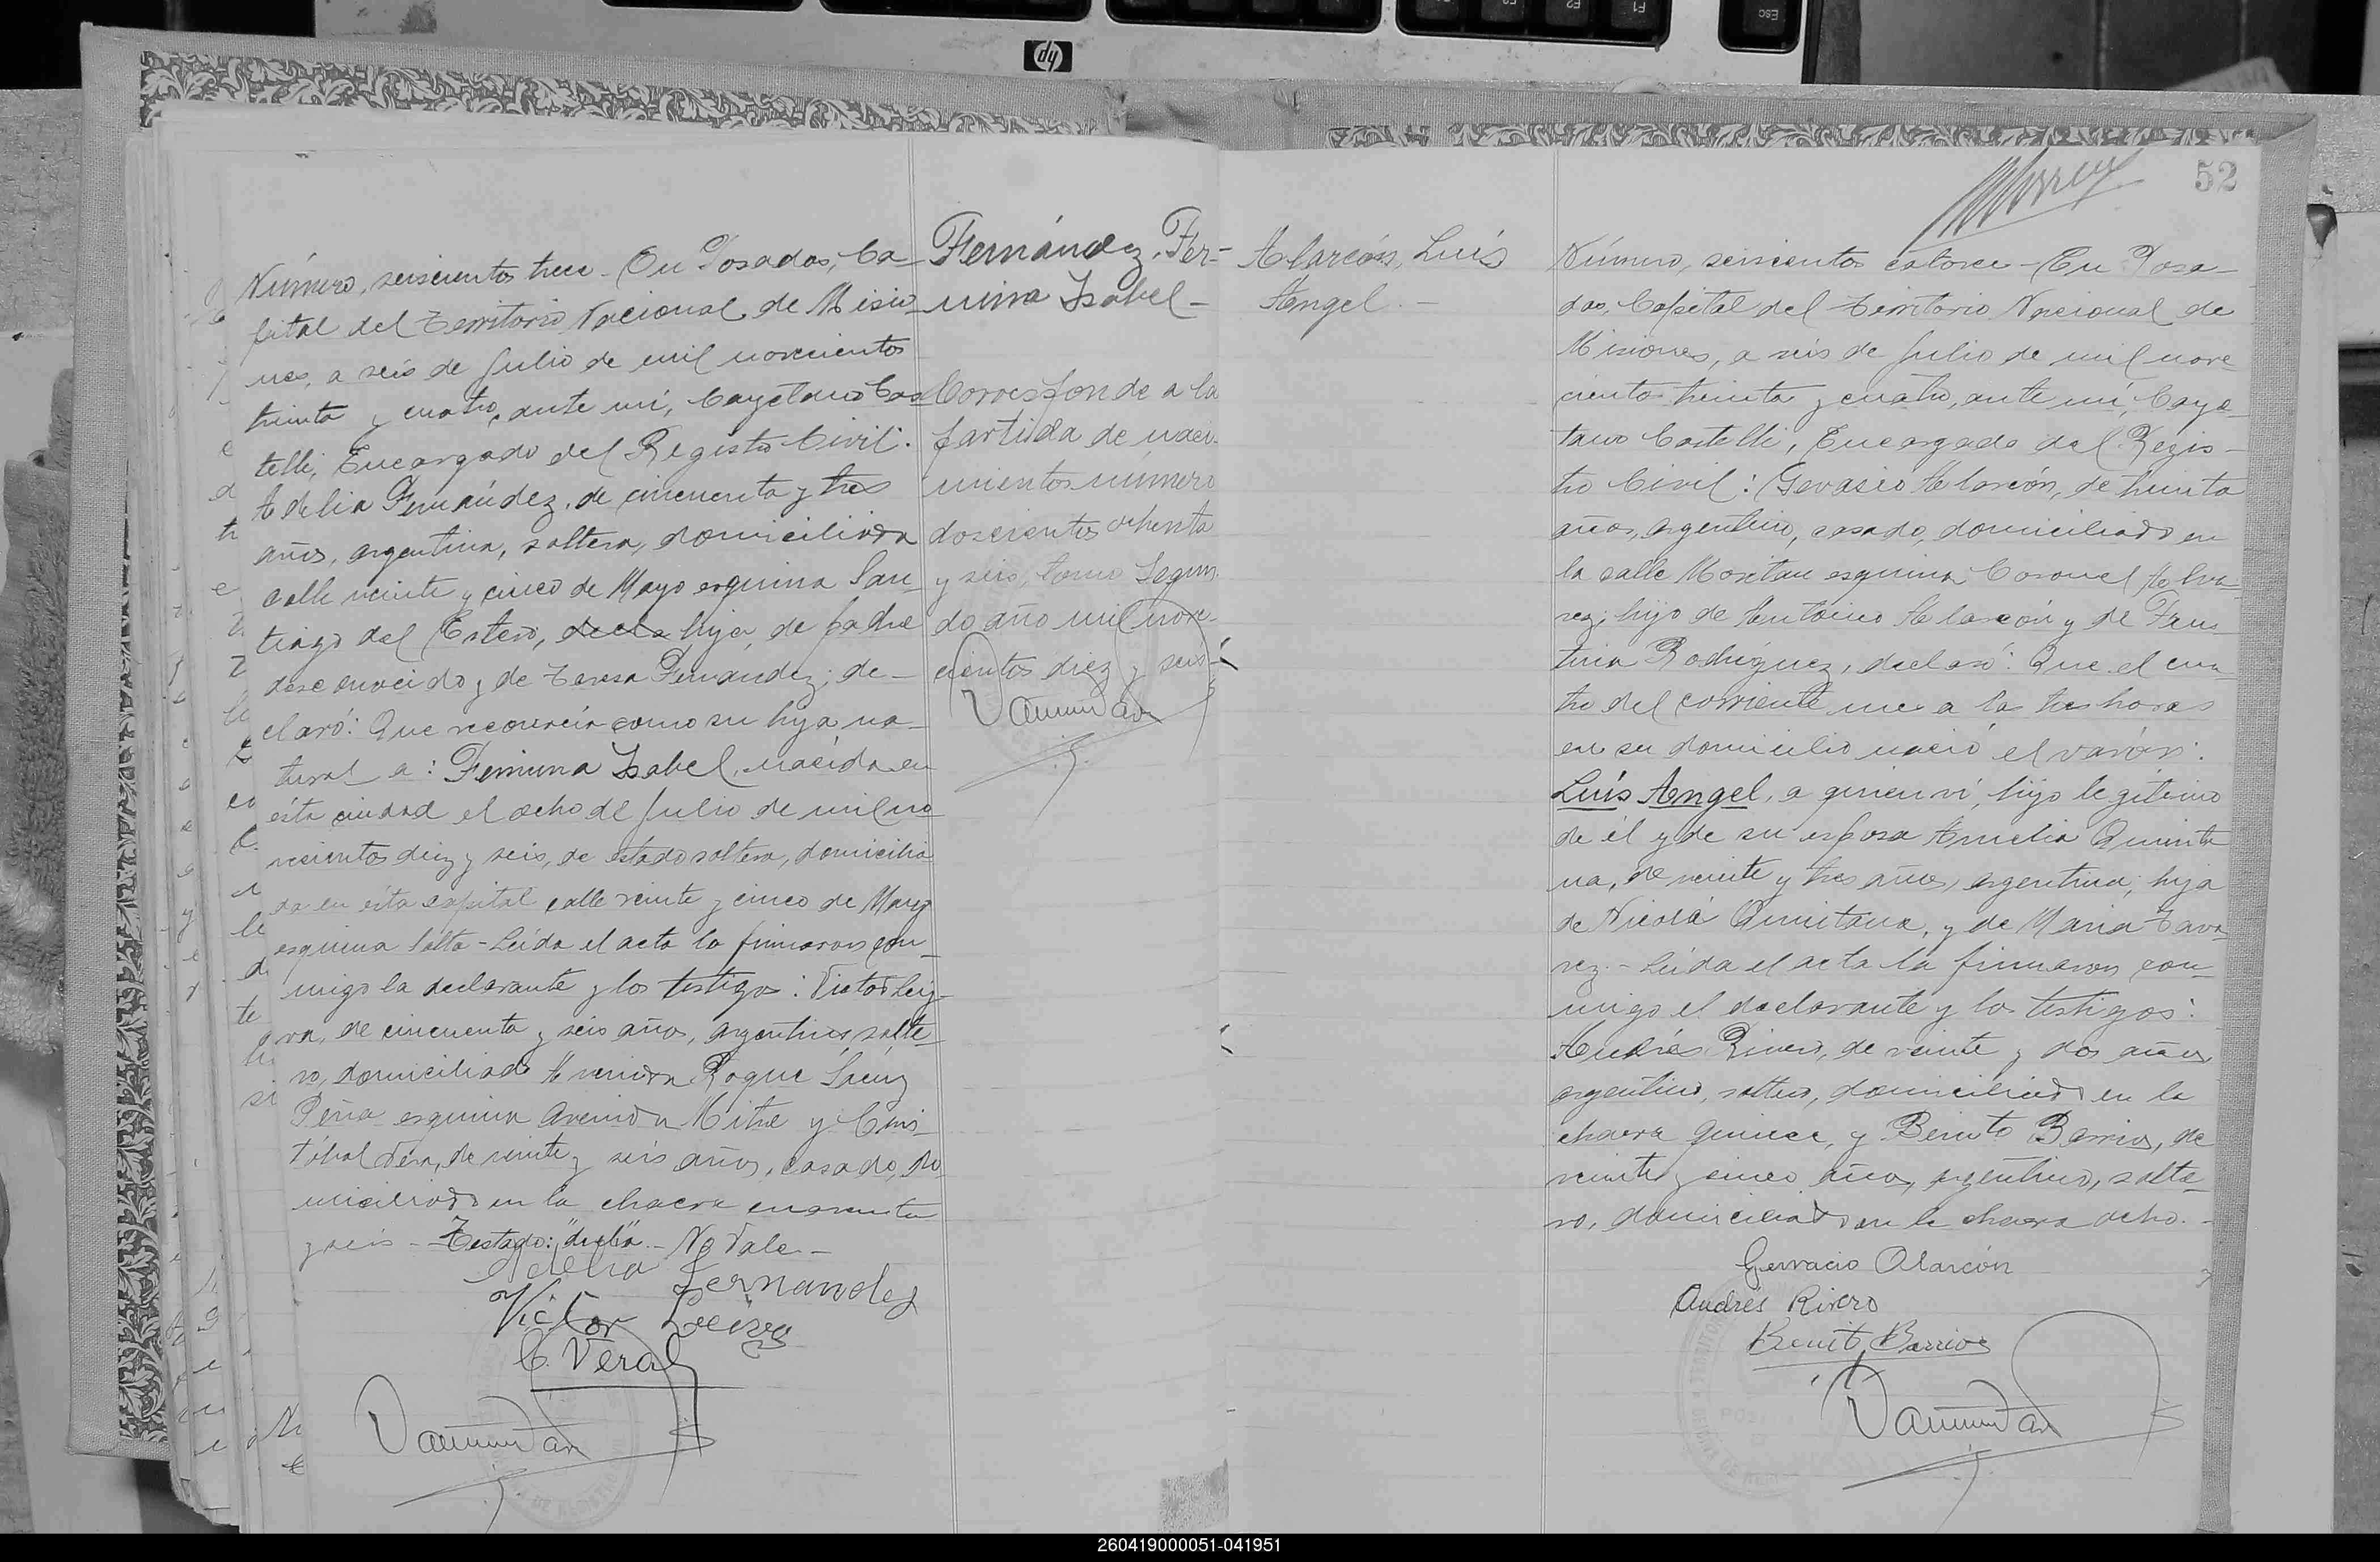 Número, seiscientos trece - En Posadas, Ca-
pital del Territorio Nacional de Misio-
nes, a seis de Julio de mil novecientos
treinta y cuatro, ante mí, Cayetano Cas-
telli, Encargado del Registro Civil:
Adelia Fernández, de cincuenta y tres
años, argentina, soltera, domiciliada
calle veinte y cinco de Mayo esquina San-
tiago del Estero, decla hija de padre
desconocido y de Teresa Fernandez; de-
claró: Que reconocía como su hija na-
tural a: Fermina Isabel, nacida en
ésta ciudad el ocho de Julio de mil no-
vecientos diez y seis, de estado soltera, domicilia-
da en ésta capital calle veinte y cinco de Mayo
esquina Salta - Leída el acta la firmaron con-
migo la declarante y los testigos: Victor Ley-
va, de cincuenta y seis años, argentino, solte-
ro, domiciliado Avenida Roque Sáenz
Peña esquina Avenida Mitre y Cris-
tóbal Vera, de veinte y seis años, casado, do-
miciliado en la chacra cuarenta
y seis - Testado: "decla" - No Vale -
Adelia Fernandez
Victor Leiva
C. Vera
Fernández, Fer-
mina Isabel -
Corresponde a la
partida de naci-
mientos número
doscientos ochenta
y seis, tomo Segun-
do año mil nove-
cientos diez y seis -
Alarcón, Luís
Angel -
52
Número, seiscientos catorce - En Posa-
das, Capital del Territorio Nacional de
Misiones, a seis de Julio de mil nove
cientos treinta y cuatro, ante mí, Caye-
tano Castelli, Encargado del Regis-
tro Civil: Gervasio Alarcón, de treinta
años, argentino, casado, domiciliado en
la calle esquina Coronel Alva-
rez; hijo de Antonio Alarcón y de Faus
tina Rodríguez, declaró: Que el cua-
tro del corriente mes a las tres horas
en su domicilio nació el varón:
Luís Angel, a quien ví, hijo legítimo
de él y de su esposa Amelia Quinta
na, de veinte y tres años, argentina; hija
de Nicolá Quintana, y de Maria Tava-
rez. - Leída el acta la firmaron con-
migo el declarante y los testigos:
Andrés Rivero, de veinte y dos años
argentino, soltero, domiciliado en la
chacra quince, y Benito Barrios, de
veinte y cinco años, argentino, solte-
ro, domiciliado en la chacra ocho. -
Gervacio Alarcón
Andrés Rivero
Benito Barrios
hp
Esc
F1
F2
260419000051-041951